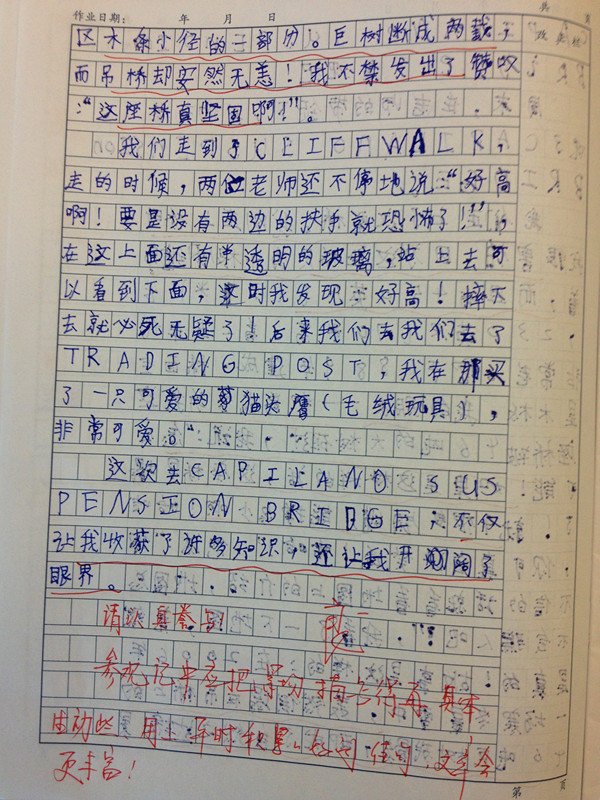 作业日期： 年 月 日
共 页
区木条小径的一部分。巨树断成两截了
而吊桥却安然无恙！我不禁发出了赞叹
：“这座桥真坚固啊！”。
我们走到了CLIFFWALK，
走的时候，两位老师还不停地说：“好高
啊！要是没有两边的扶手就恐怖了！”，
在这上面还有半透明的玻璃，站上去可
以看到下面，这时我发现：好高！摔下
去就必死无疑了！后来我们去我们去了
TRADING POST，我在那买
了一只可爱的猫头鹰（毛绒玩具），
非常可爱。
这次去CAPILANO SUS
PENSION BRIDGE，不仅
让我收获了许多知识，还让我开阔了
眼界。
请认真书写！
参观记中应把景物描写得再具体
生动些，用上平时积累的好词佳句，文章会
更丰富！
第 页